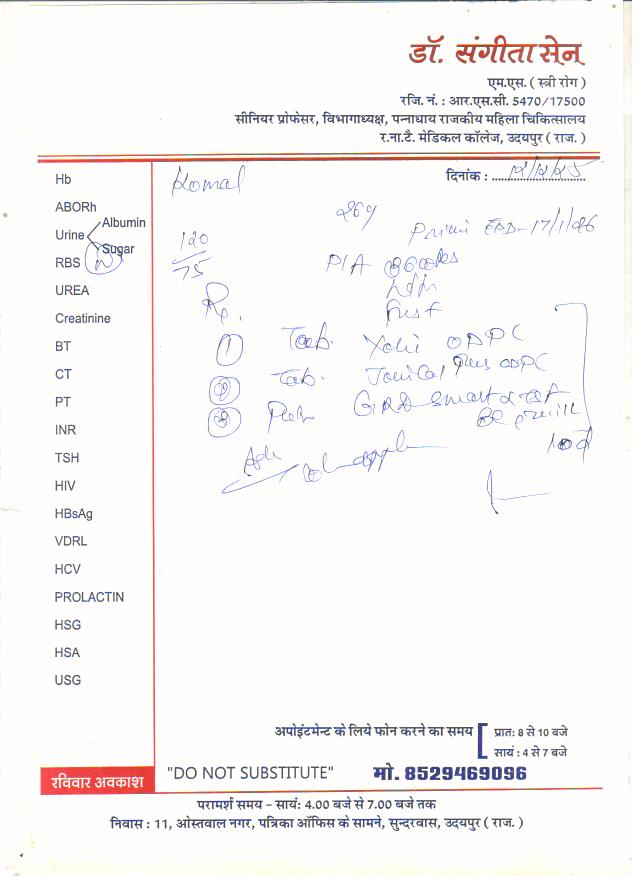 डॉ. संगीता सेन
एम.एस. ( स्त्री रोग )
रजि. नं. : आर.एस.सी. 5470/17500
सीनियर प्रोफेसर, विभागाध्यक्ष, पन्नाधाय राजकीय महिला चिकित्सालय
र.ना.टै. मेडिकल कॉलेज, उदयपुर ( राज. )
दिनांक :
Komal
Hb
ABORh
Urine Albumin
Sugar
RBS
UREA
Creatinine
BT
CT
PT
INR
TSH
HIV
HBsAg
VDRL
HCV
PROLACTIN
HSG
HSA
USG
26y
Primi EDD-17/1/26
120/75
P/A
Rx.
1 Tab. ODPC
2 Tab. Plus ODPC
3
10d
Adv
अपोइंटमेन्ट के लिये फोन करने का समय [ प्रात: 8 से 10 बजे
सायं : 4 से 7 बजे
रविवार अवकाश
"DO NOT SUBSTITUTE" मो. 8529469096
परामर्श समय - सायं: 4.00 बजे से 7.00 बजे तक
निवास : 11, ओस्तवाल नगर, पत्रिका ऑफिस के सामने, सुन्दरवास, उदयपुर ( राज. )